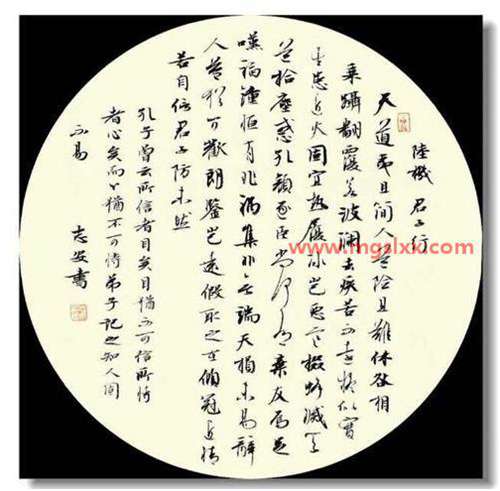 陸機 君子行
天道夷且簡人道險且難休咎相
乘躡翻覆若波瀾去疾苦不遠疑似實
生患近火固宜熱履冰豈惡寒掇蜂滅天
道拾塵惑孔顏逐臣尚何有棄友焉足
嘆福鍾恒有兆禍集非無端天損未易辭
人益猶可歡朗鑒豈遠假取之在傾冠近情
苦自信君子防未然
孔子曾云所信者目矣目猶不可信所恃
者心矣而心猶不可恃弟子記之知人固
不易
志安書
www.mgslxx.com